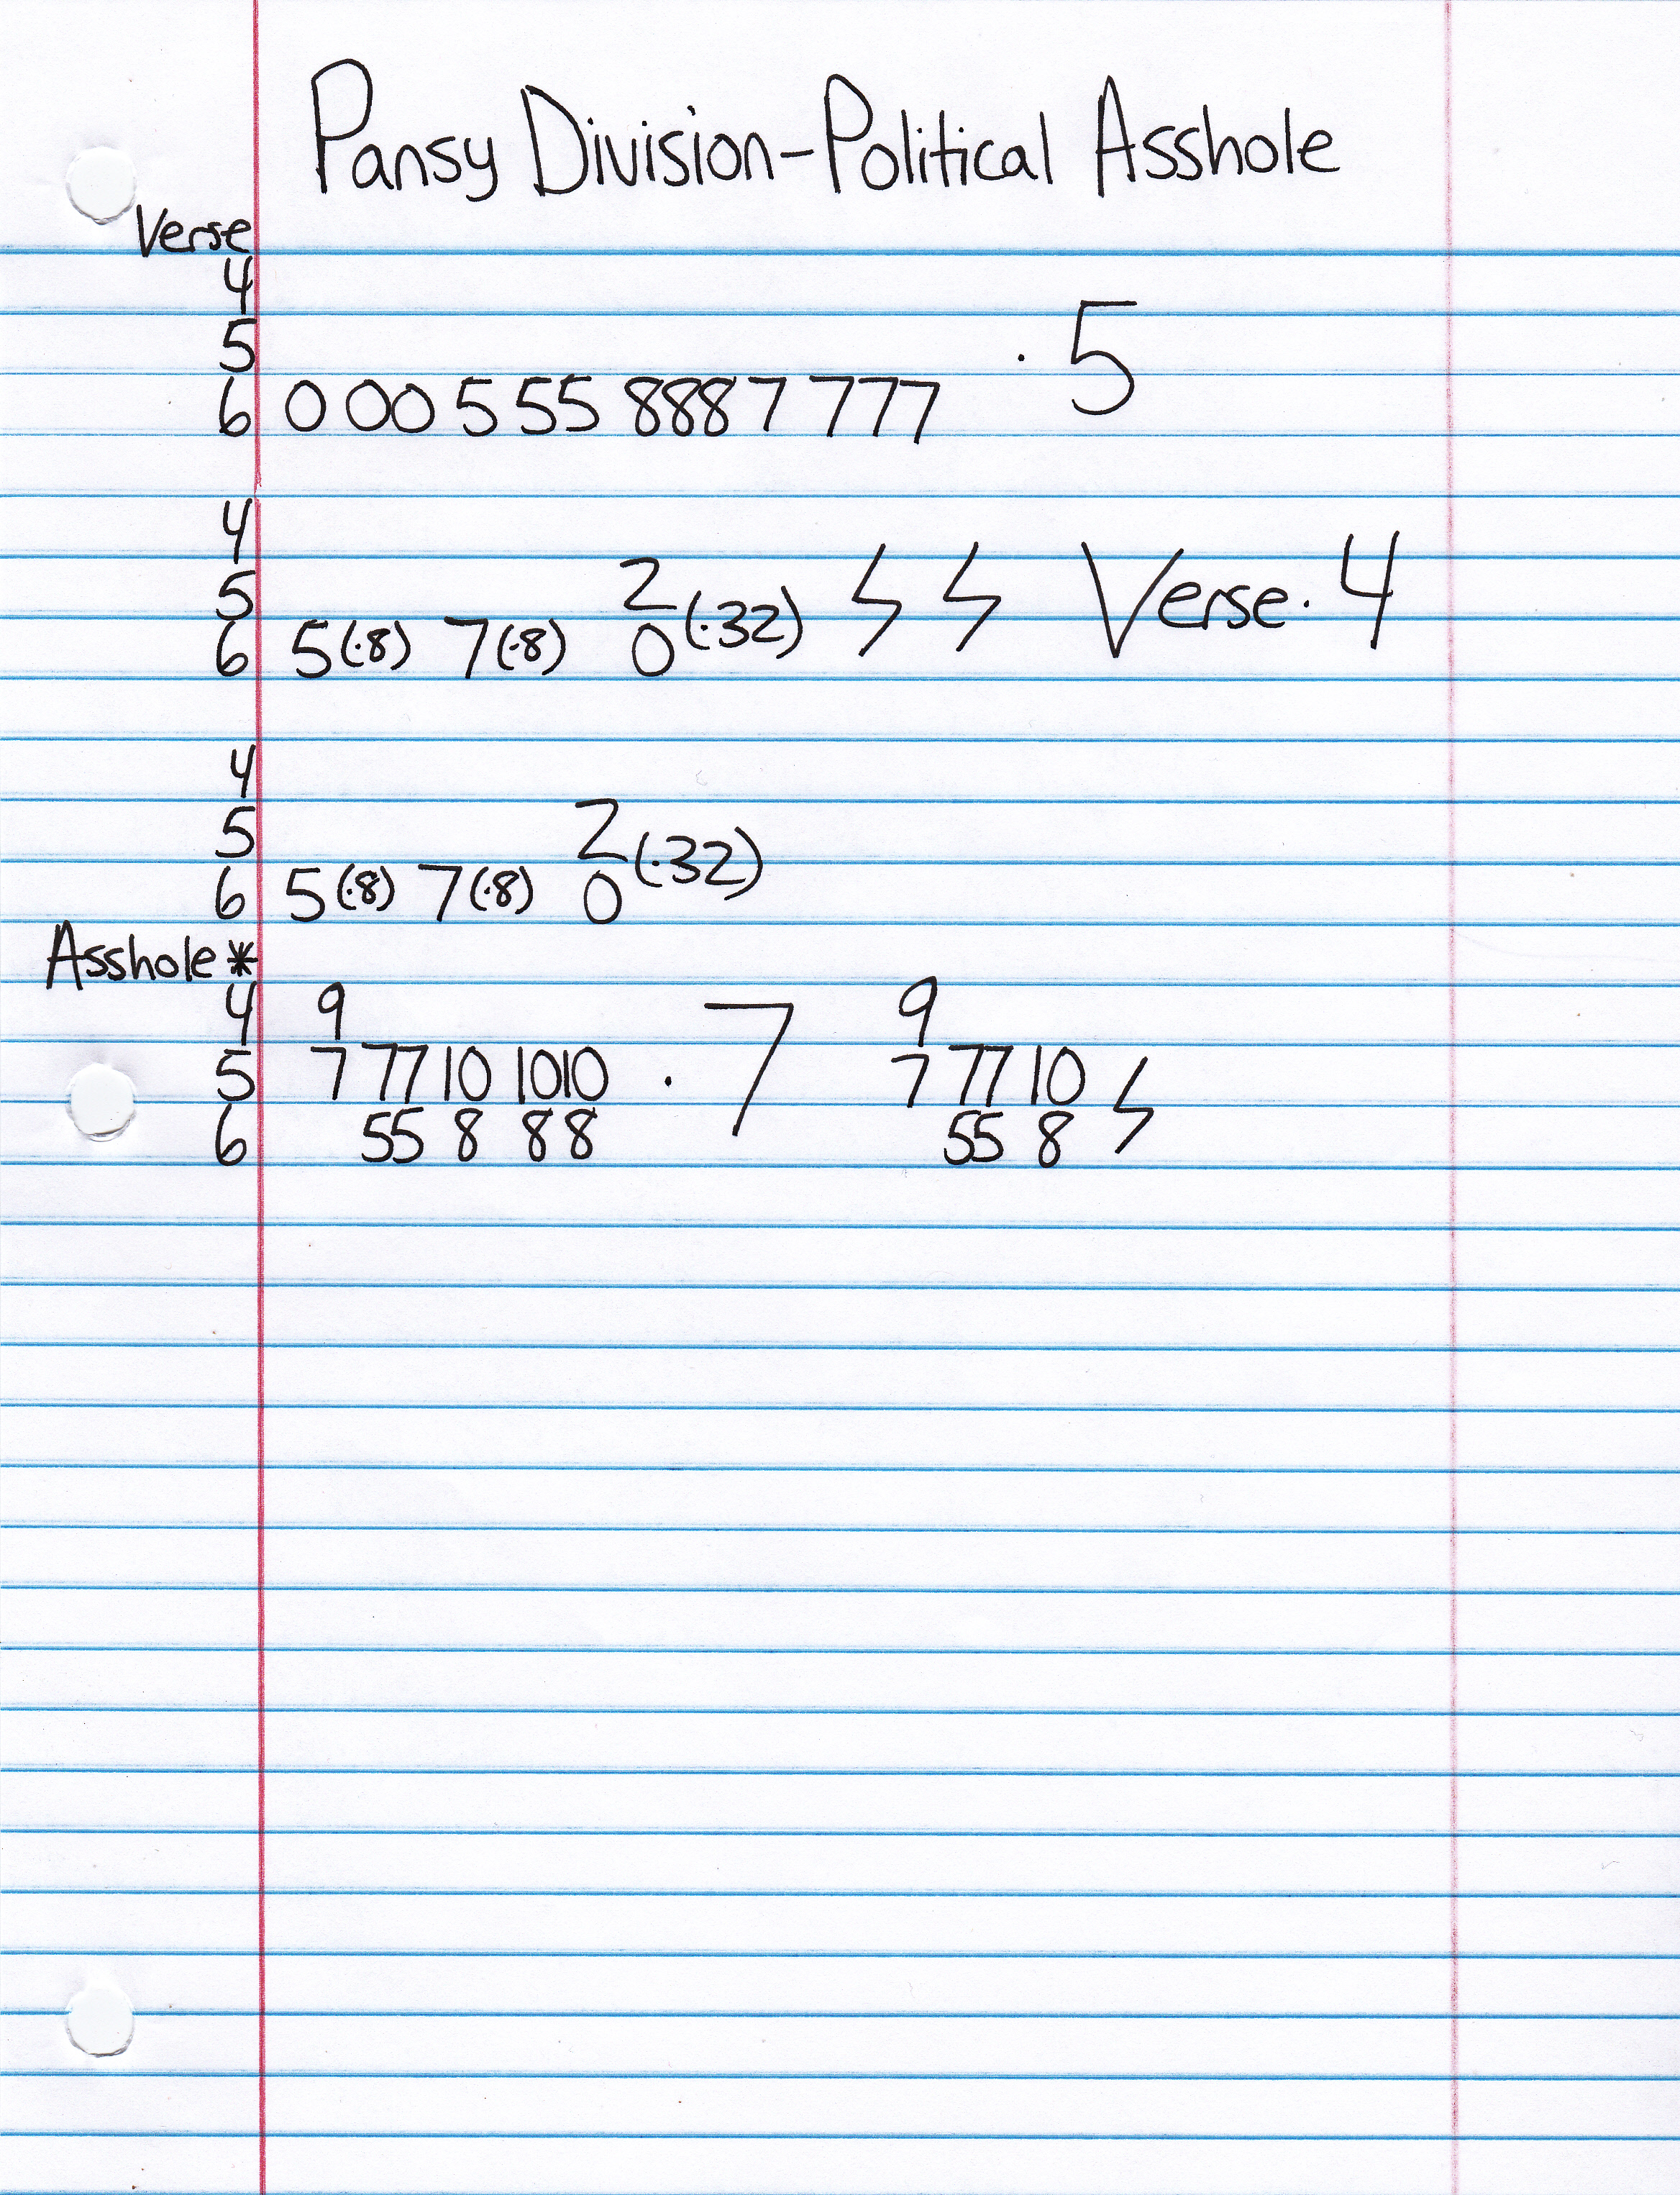 Pansy Division-Political Asshole
Verse
4
5
6 0 00 5 55 8887 777 ·5
4
5 2
6 5(·8) 7(·8) 0(·32) Verse·4
4
5 2
6 5(·8) 7(·8) 0(·32)
Asshole*
4 9 9
5 7 77 10 1010 ·7 7 77 10
6 55 8 88 55 8